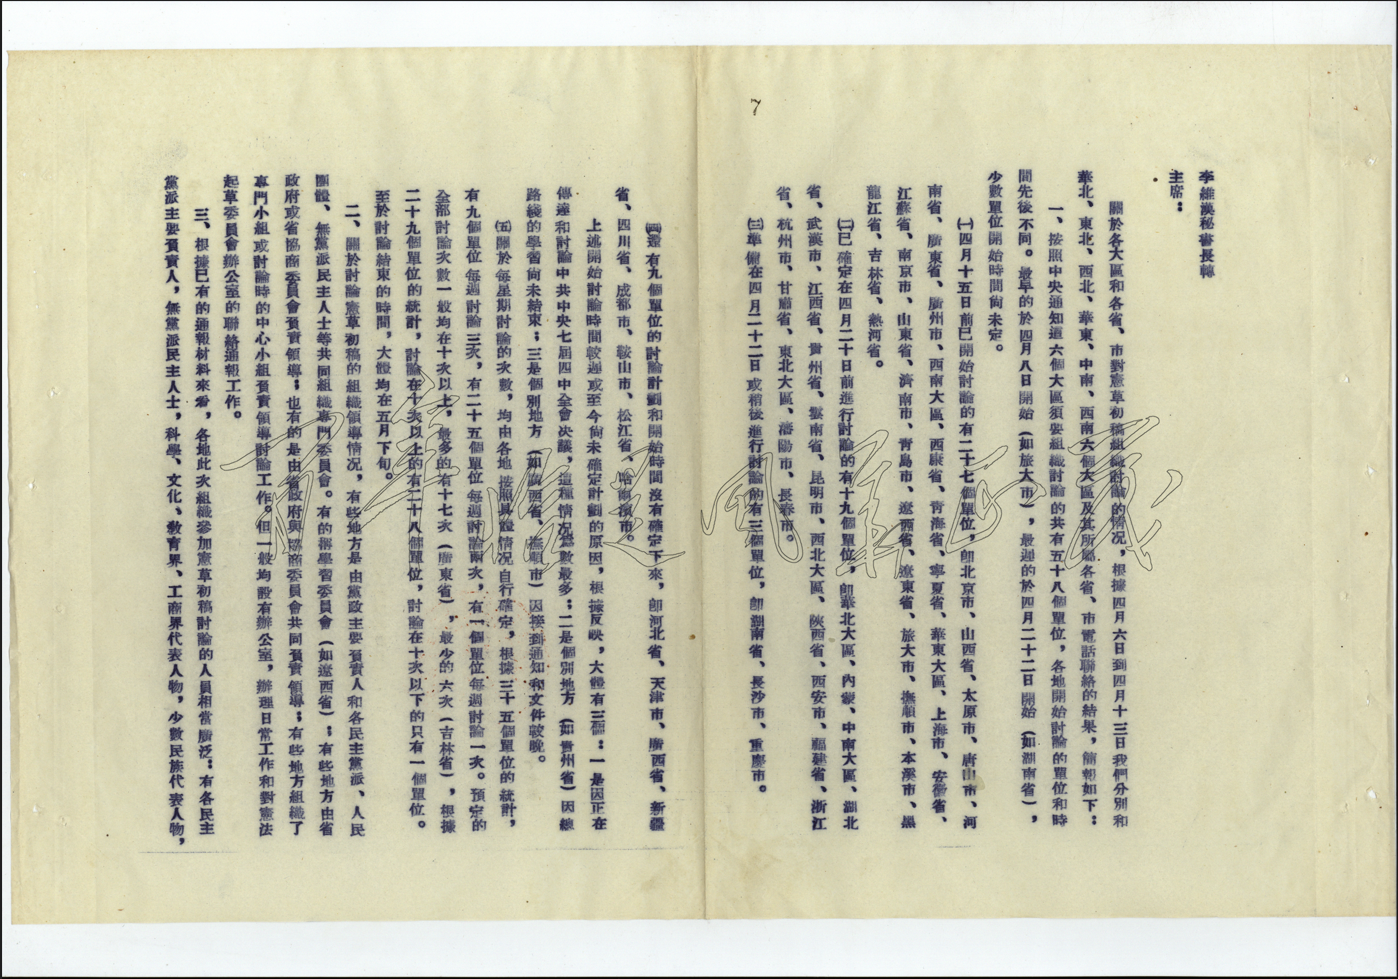 7
李維漢秘書長轉
主席：
關於各大區和各省、市對憲草初稿組織討論的情況，根據四月六日到四月十三日我們分別和
華北、東北、西北、華東、中南、西南六個大區及其所屬各省、市電話聯絡的結果，簡報如下：
一、按照中央通知這六個大區須要組織討論的共有五十八個單位，各地開始討論的單位和時
間先後不同。最早的於四月八日開始（如旅大市），最遲的於四月二十二日開始（如湖南省），
少數單位開始時間尚未定。
㈠四月十五日前已開始討論的有二十七個單位，即北京市、山西省、太原市、唐山市、河
南省、廣東省、廣州市、西南大區、西康省、青海省、寧夏省、華東大區、上海市、安徽省、
江蘇省、南京市、山東省、濟南市、青島市、遼西省、遼東省、旅大市、撫順市、本溪市、黑
龍江省、吉林省、熱河省。
㈡已確定在四月二十日前進行討論的有十九個單位，即華北大區、內蒙、中南大區、湖北
省、武漢市、江西省、貴州省、雲南省、昆明市、西北大區、陝西省、西安市、福建省、浙江
省、杭州市、甘肅省、東北大區、瀋陽市、長春市。
㈢準備在四月二十二日或稍後進行討論的有三個單位，即湖南省、長沙市、重慶市。
㈣還有九個單位的討論計劃和開始時間沒有確定下來，即河北省、天津市、廣西省、新疆
省、四川省、成都市、鞍山市、松江省、哈爾濱市。
上述開始討論時間較遲或至今尚未確定計劃的原因，根據反映，大體有三個：一是因正在
傳達和討論中共中央七屆四中全會決議，這種情況為數最多；二是個別地方（如貴州省）因總
路綫的學習尚未結束；三是個別地方（如陝西省、撫順市）因接到通知和文件較晚。
㈤關於每星期討論的次數，均由各地按照具體情況自行確定，根據三十五個單位的統計，
有九個單位每週討論三次，有二十五個單位每週討論兩次，有一個單位每週討論一次。預定的
全部討論次數一般均在十次以上，最多的有十七次（廣東省），最少的六次（吉林省），根據
二十九個單位的統計，討論在十次以上的有二十八個單位，討論在十次以下的只有一個單位。
至於討論結束的時間，大體均在五月下旬。
二、關於討論憲草初稿的組織領導情況，有些地方是由黨政主要負責人和各民主黨派、人民
團體、無黨派民主人士等共同組織專門委員會。有的稱學習委員會（如遼西省）；有些地方由省
政府或省協商委員會負責領導；也有的是由省政府與協商委員會共同負責領導；有些地方組織了
專門小組或討論時的中心小組負責領導討論工作。但一般均設有辦公室，辦理日常工作和對憲法
起草委員會辦公室的聯絡通報工作。
三、根據已有的通報材料來看，各地此次組織參加憲草初稿討論的人員相當廣泛；有各民主
黨派主要負責人，無黨派民主人士，科學、文化、教育界、工商界代表人物，少數民族代表人物，